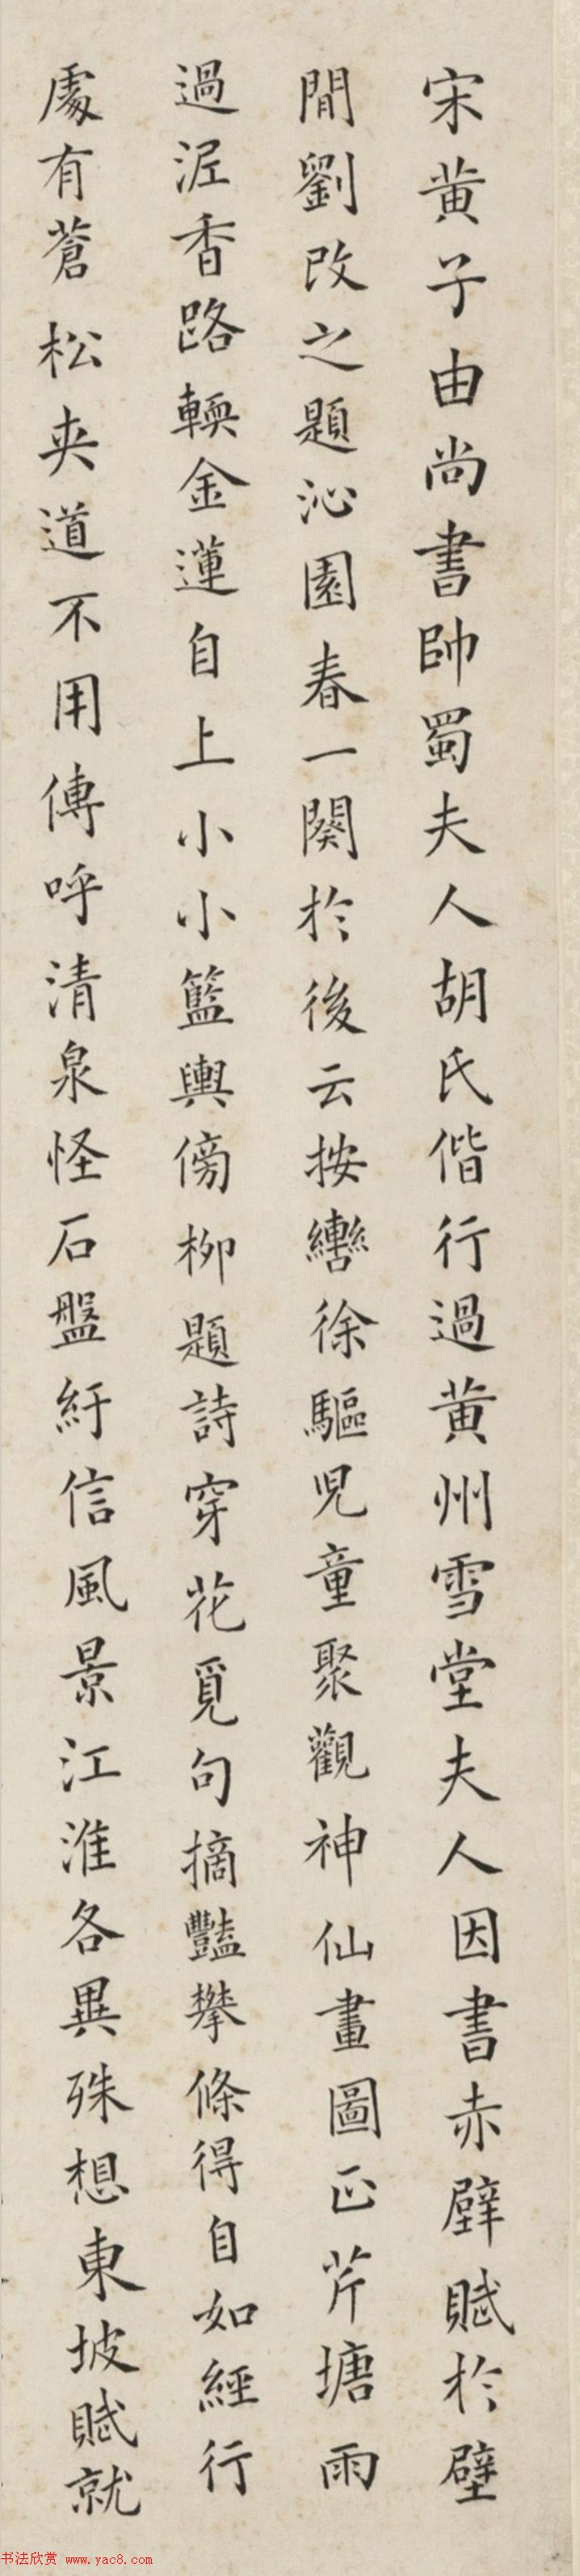 宋黄子由尚書帥蜀夫人胡氏偕行過黄州雪堂夫人因書赤壁賦於壁
間劉改之題沁園春一闋於後云按轡徐驅児童聚觀神仙畫圖正芹塘雨
過泥香路輭金蓮自上小小籃輿傍柳題詩穿花覓句摘豔攀條得自如經行
處有蒼松夹道不用傳呼清泉怪石盤紆信風景江淮各異殊想東坡賦就
书法欣赏 www.yac8.com